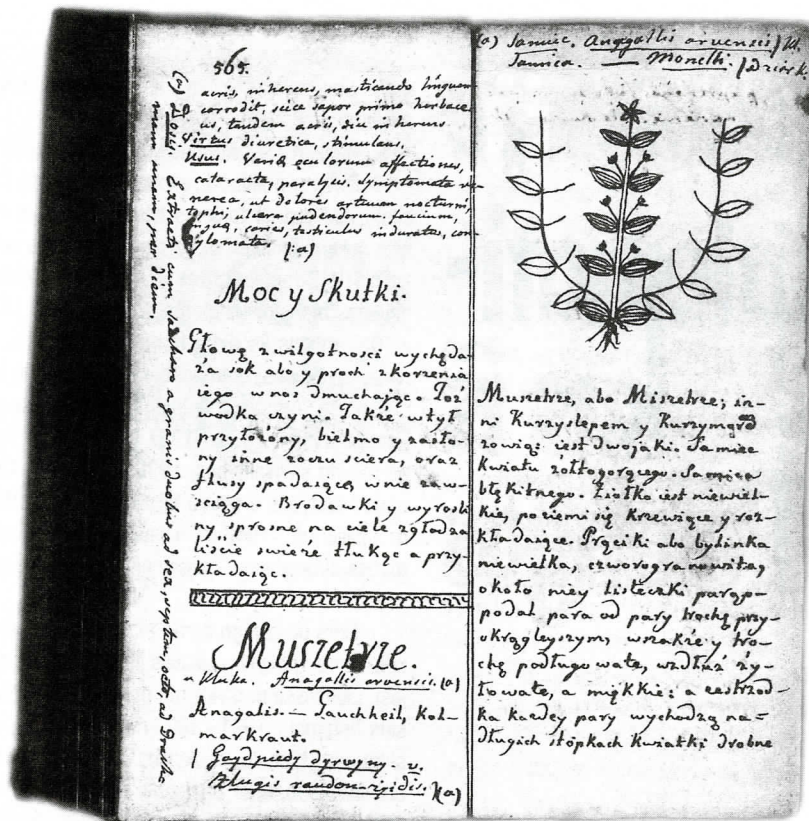 565.
acris, inhercus, masticando linguam
corrodit, seice sapor primo herbace
us, tandem acris, diu inhercus
Virtus diuretica, stimulans.
Usus. Variæ oculorum affectiones,
cataracta, paralysis. Symptomata ve-
nerea, ut dolores artuum nocturni,
tophi, ulcera pudendorum. faucium,
linguæ, caries, testiculus induratus, con-
dylomata (:a)
(a) Dosis. Extracti cum saccharo a granis duobus ad sex, septem, octo, ad Drachi
mam unam, per diem,
Moc y Skutki.
Głowę z wilgotnosci wychęda-
ża sok abo y proch z korzenia
iego w nos dmuchaiąc. Toż
wodka czyni. Także w tył
przyłożony, bielmo y zasło-
ny inne z oczu sciera, oraz
flusy spadaiącę w nie zaw-
sciąga. Brodawki y wyrosli
ny sprosne na ciele zgładza
liście świeże tłukąc a przy-
kładaiąc.
Muszetrze.
u Kluka. Anagallis arvensis. (a)
Anagalis. - Gauchheil, Kol-
markraut.
Gaydpiedy dyrwyny. v.
Żlugis raudon-ziedis. (a)
(a) Samiec. Anagallis arvensis) Kl.
Samica. — Monelli. ) Dziark.
Muszetrze, abo Miszetrze; in-
ni Kurzyslepem y Kurzymord
zowią: iest dwojaki. Samiec
Kwiatu zołtogorącego. Samica
błękitnego. Ziołko iest niewiel-
kie, po ziemi się krzewiące y roz-
kładaiące. Pręciki abo bylinka
niewielka, czworogranowita,
około niey listeczki parąp-
podal para od pary trochę przy-
okrągleyszym, wszakże y tro-
chę podługowate, wzdłuż ży-
łowate, a miękkie: a ześrzod-
ka kazdey pary wychodzą na=
długich stopkach Kwiatki drobne